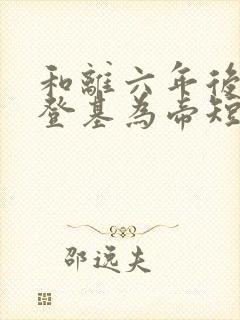 和離六年後
登基為帝短
邵远夫